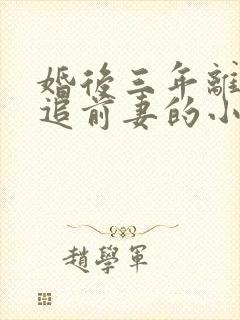 婚後三年離
追前妻的小
趙學軍